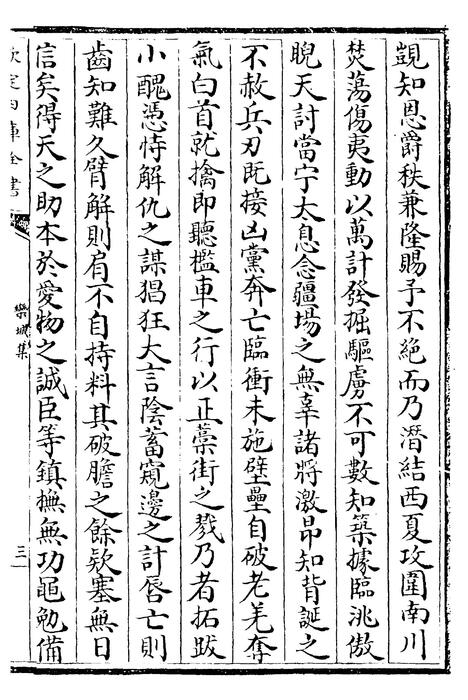 覬知恩爵秩兼隆賜予不絶而乃潛結西夏攻圍南川
焚蕩傷夷動以萬計發掘驅虜不可數知築據臨洮傲
睨天討當宁太息念疆場之無辜諸將激昻知背誕之
不赦兵刃既接凶黨奔亡臨衝未施壁壘自破老羌奪
氣白首就擒即聽檻車之行以正藁街之戮乃者拓跋
小醜憑恃解仇之謀猖狂大言陰蓄窺邊之計唇亡則
齒知難久臂解則肩不自持料其破膽之餘欵塞無日
信矣得天之助本於愛物之誠臣等鎮撫無功黽勉備
欽定四庫全書
欒城集
三